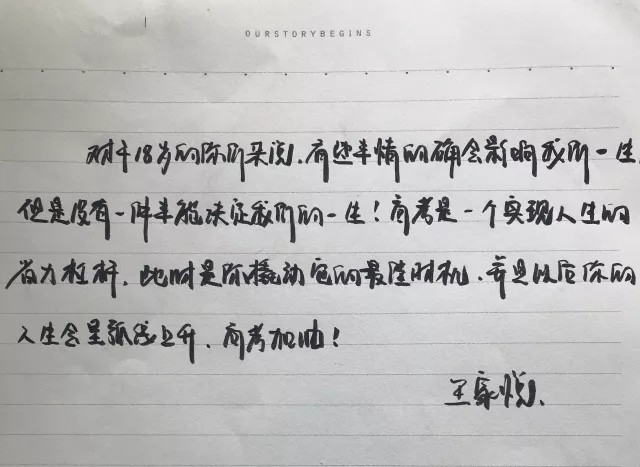 OURSTORYBEGINS
对于18岁的你们来说,有些事情的确会影响我们一生,
但是没有一件事能决定我们的一生!高考是一个实现人生的
省力杠杆,此时是你撬动它的最佳时机,并且以后你的
人生会呈弧线上升,高考加油!
王家悦.